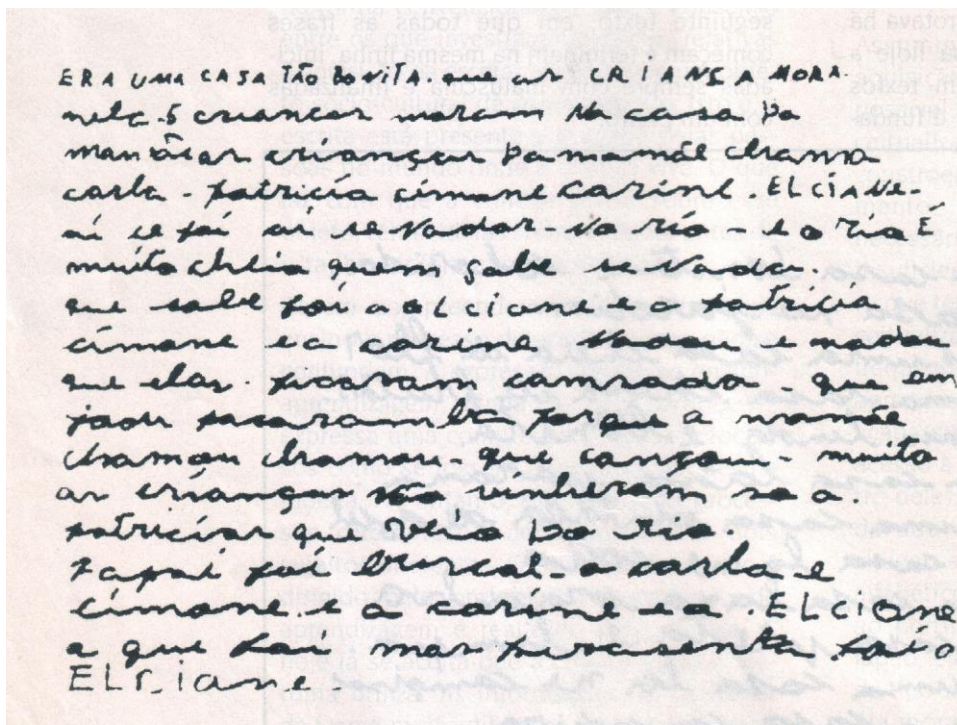 ERA UMA CASA Tão BoviTA. que as CRIANSA MORA.
nela. 5 criancas moram Na casa. Da
mamãe as crianças Da mamãe chama
carla - patricia cimone carine. ELCIANE-
ai se foi ai se Nadar - No rio - e o rio É
muito cheio quem sabe se Nadar.
que sabe foi a ELCIONE e a patricia
cimone e a carine. Nadou e nadou
que elas. ficaram camsada - que em
pode porque a mamãe
chamou chamou - que cançou - muito
as crianças Não vinheram so a
patricia que veio Do rio.
papai foi buscal - a carla - e
cimone - e a carine e a. ELCIONE
a que foi mas foi a
ELCIANE